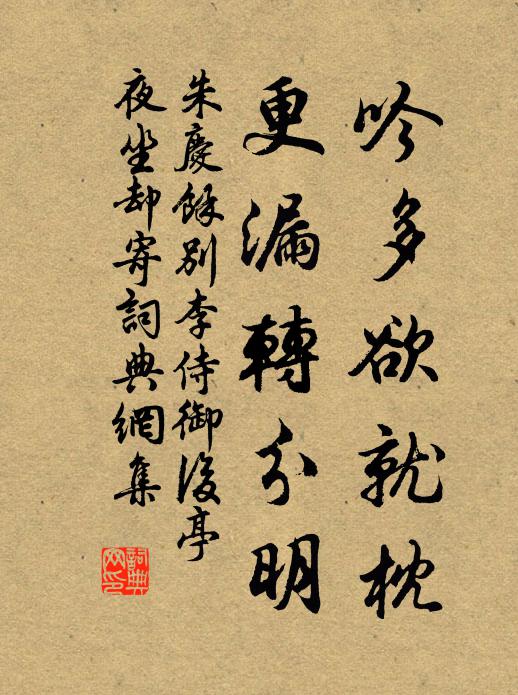 吟多欲就枕
更漏轉分明
朱慶餘別李侍御後亭
夜坐却寄詞典網集
詞典网印